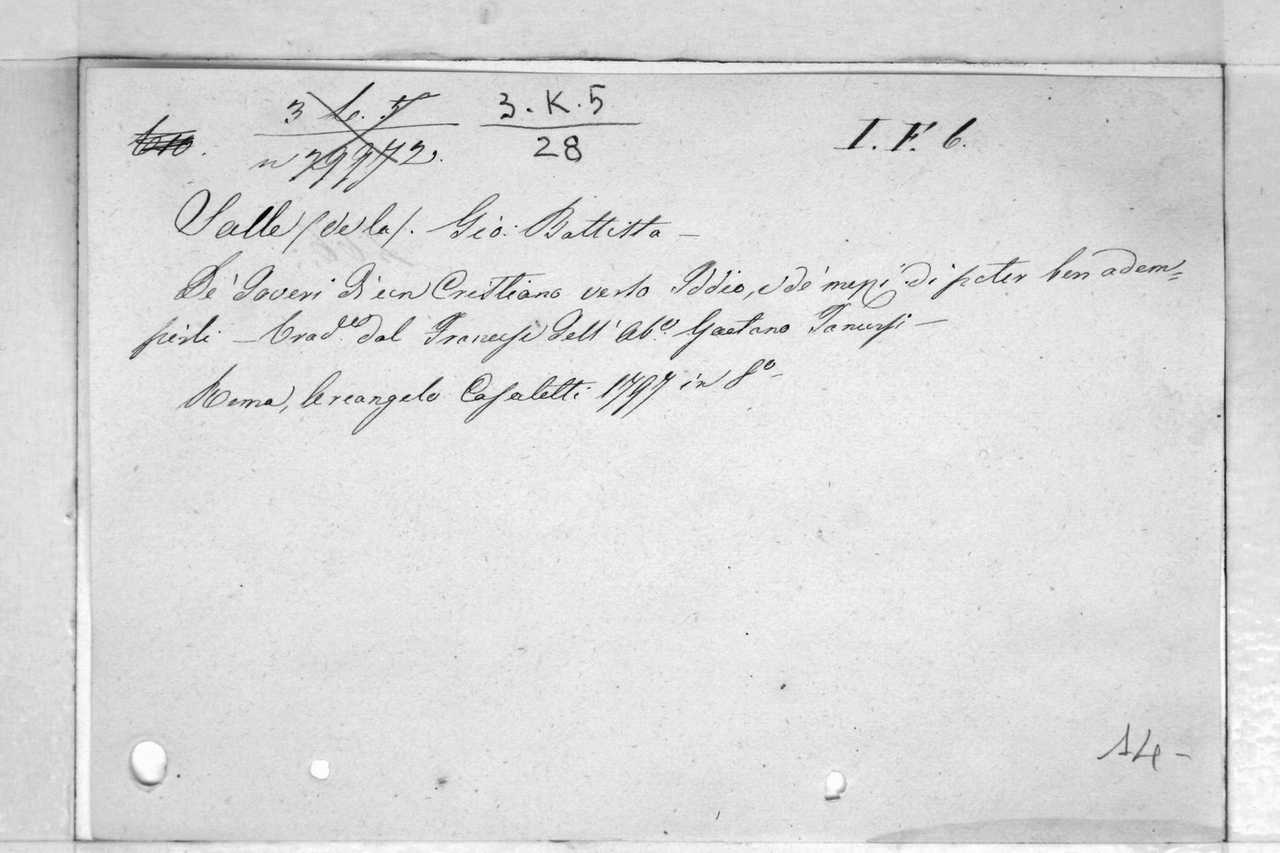 3 b. 5 3. K. 5 I. F. 6.
28
Salle (de la). Gio: Battista -
De' Doveri di un Cristiano verso Iddio, e de' mezzi di poter ben adem=
pirli - Trad.e dal Francese dell' Ab.e Gaetano Tanursi -
Roma, Arcangelo Casaletti 1797 in 8º -
14 -